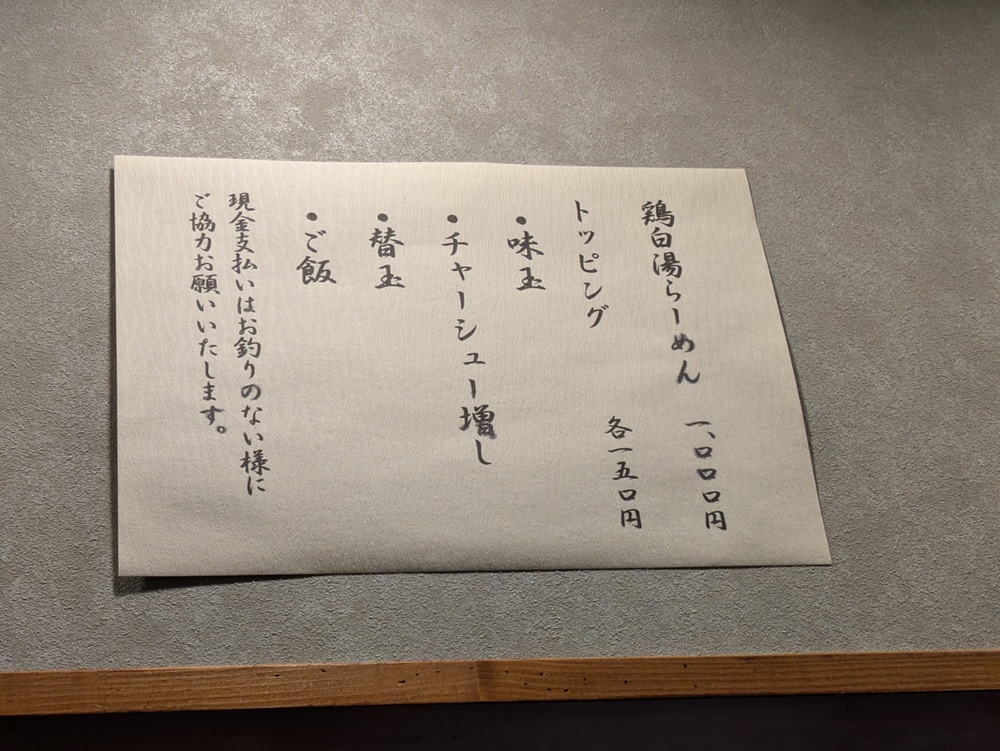 鶏白湯らーめん 一、〇〇〇円
トッピング 各一五〇円
・味玉
・チャーシュー増し
・替玉
・ご飯
現金支払いはお釣りのない様に
ご協力お願いいたします。